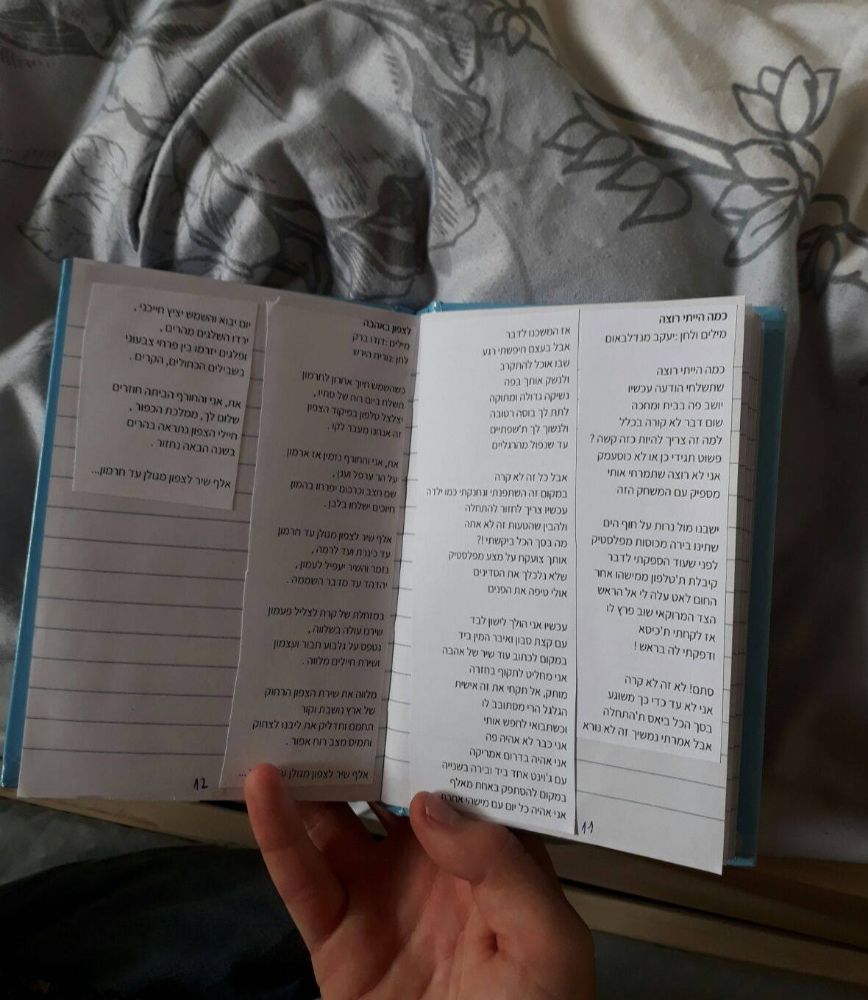 כמה הייתי רוצה
מילים ולחן :יעקב מנדלבאום
כמה הייתי רוצה
שתשלחי הודעה עכשיו
יושב פה בבית ומחכה
שום דבר לא קורה בכלל
למה זה צריך להיות כזה קשה ?
פשוט תגידי כן או לא כוסעמק
אני לא רוצה שתמרחי אותי
מספיק עם המשחק הזה
ישבנו מול נרות על חוף הים
שתינו בירה מכוסות מפלסטיק
לפני שעוד הספקתי לדבר
קיבלת ת'טלפון ממישהו אחר
החום לאט עלה לי אל הראש
הצד המרוקאי שוב פרץ לו
אז לקחתי ת'כיסא
ודפקתי לה בראש !
סתם! לא זה לא קרה
אני לא עד כדי כך משוגע
בסך הכל ביאס ת'התחלה
אבל אמרתי נמשיך זה לא נורא
אז המשכנו לדבר
אבל בעצם חיפשתי רגע
שבו אוכל להתקרב
ולנשק אותך בפה
נשיקה גדולה ומתוקה
לתת לך בוסה רטובה
ולנשוך לך ת'שפתיים
עד שנפול מהרגליים
אבל כל זה לא קרה
במקום זה השתפנתי ונחנקתי כמו ילדה
עכשיו צריך לחזור להתחלה
ולהבין שהטעות זה לא אתה
מה בסך הכל ביקשתי !?
אותך צועקת על מצע מפלסטיק
שלא נלכלך את הסדינים
אולי טיפה את הפנים
עכשיו אני הולך לישון לבד
עם קצת סבון ואיבר המין ביד
במקום לכתוב עוד שיר של אהבה
אני מחליט לתקוף בחזרה
מותק, אל תקחי את זה אישית
הגלגל הרי מסתובב לו
וכשתבואי לחפש אותי
אני כבר לא אהיה פה
אני אהיה בדרום אמריקה
עם ג'וינט אחד ביד ובירה בשנייה
במקום להסתפק באחת מאלף
אני אהיה כל יום עם מישהי אחרת
11
לצפון באהבה
מילים :דודו ברק
לחן :נורית הירש
כשהשמש חיוך אחרון לחרמון
תשלח ביום רוח של סתיו ,
יצלצל טלפון בפיקוד הצפון
זה אנחנו מעבר לקו .
את, אני והחורף נזמין אז ארמון
על הר ערפל וענן ,
שם חצב וכרכום יפרחו בהמון
חיוכים ישלחו בלבן .
אלף שיר לצפון מגולן עד חרמון
עד כינרת ועד לרמה ,
נזמר והשיר יעפיל לעמון ,
יהדהד עד מדבר השממה .
במזחלת של קרח לצליל פעמון
שירנו עולה בשלווה ,
נטפס על גלבוע תבור ועצמון
ושירת חיילים מלווה .
מלווה את שירת הצפון הרחוק
של ארץ נושבת וקור
תחמם ותדליק את ליבנו לצחוק
ותמיס מצב רוח אפור .
אלף שיר לצפון מגולן ...
יום יבוא והשמש יציץ חייכני ,
ירדו השלגים מהרים ,
ופלגים יזרמו בין פרחי צבעוני
בשבילים הכחולים, הקרים .
את, אני והחורף הביתה חוזרים
שלום לך, ממלכת הכפור ,
חיילי הצפון נתראה בהרים
בשנה הבאה נחזור .
אלף שיר לצפון מגולן עד חרמון...
12